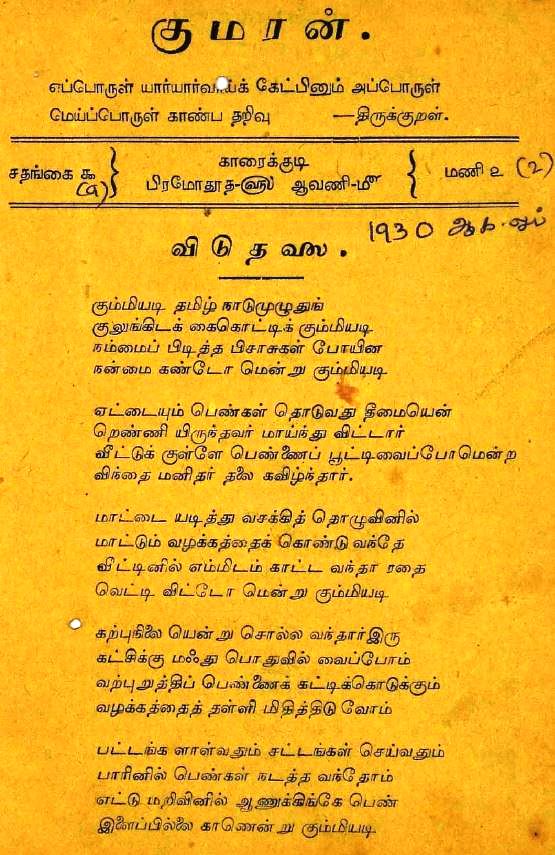 குமரன்.
எப்பொருள் யார்யார்வாய்க் கேட்பினும் அப்பொருள்
மெய்ப்பொருள் காண்ப தறிவு —திருக்குறள்.
சதங்கை ௯ (9)
காரைக்குடி
பிரமோதூத-௵ ஆவணி-௴
மணி ௨ (2)
1930 ஆக-ஸப்
விடுதலை.
கும்மியடி தமிழ் நாடுமுழுதுங்
குலுங்கிடக் கைகொட்டிக் கும்மியடி
நம்மைப் பிடித்த பிசாசுகள் போயின
நன்மை கண்டோ மென்று கும்மியடி
ஏட்டையும் பெண்கள் தொடுவது தீமையென்
றெண்ணி யிருந்தவர் மாய்ந்து விட்டார்
வீட்டுக் குள்ளே பெண்ணைப் பூட்டிவைப்போமென்ற
விந்தை மனிதர் தலை கவிழ்ந்தார்.
மாட்டை யடித்து வசக்கித் தொழுவினில்
மாட்டும் வழக்கத்தைக் கொண்டு வந்தே
வீட்டினில் எம்மிடம் காட்ட வந்தா ரதை
வெட்டி விட்டோ மென்று கும்மியடி
கற்புநிலை யென்று சொல்ல வந்தார்இரு
கட்சிக்கு மஃது பொதுவில் வைப்போம்
வற்புறுத்திப் பெண்ணைக் கட்டிக்கொடுக்கும்
வழக்கத்தைத் தள்ளி மிதித்திடு வோம்
பட்டங்க ளாள்வதும் சட்டங்கள் செய்வதும்
பாரினில் பெண்கள் நடத்த வந்தோம்
எட்டு மறிவினில் ஆணுக்கிங்கே பெண்
இளைப்பில்லை காணென்று கும்மியடி